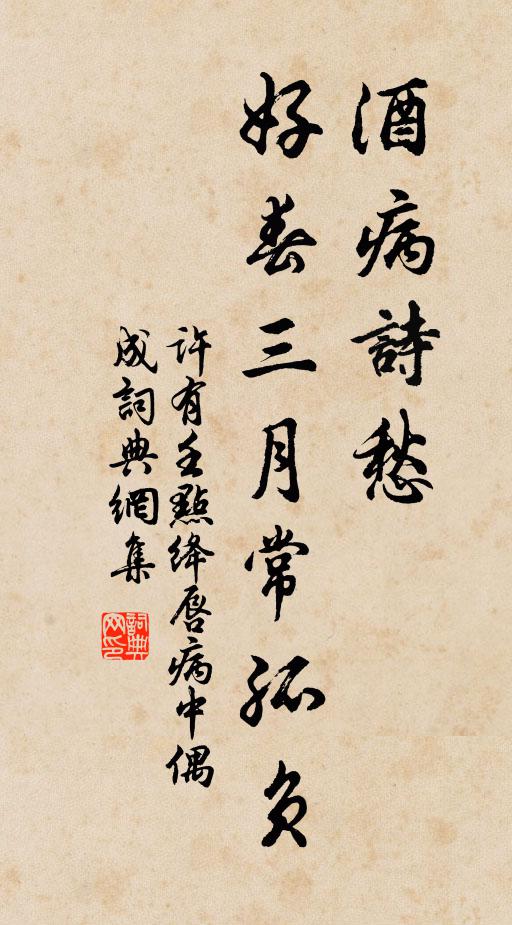 酒病詩愁
好春三月常孤負
許有壬點絳唇病中偶
成詞典網集
詞典
网印